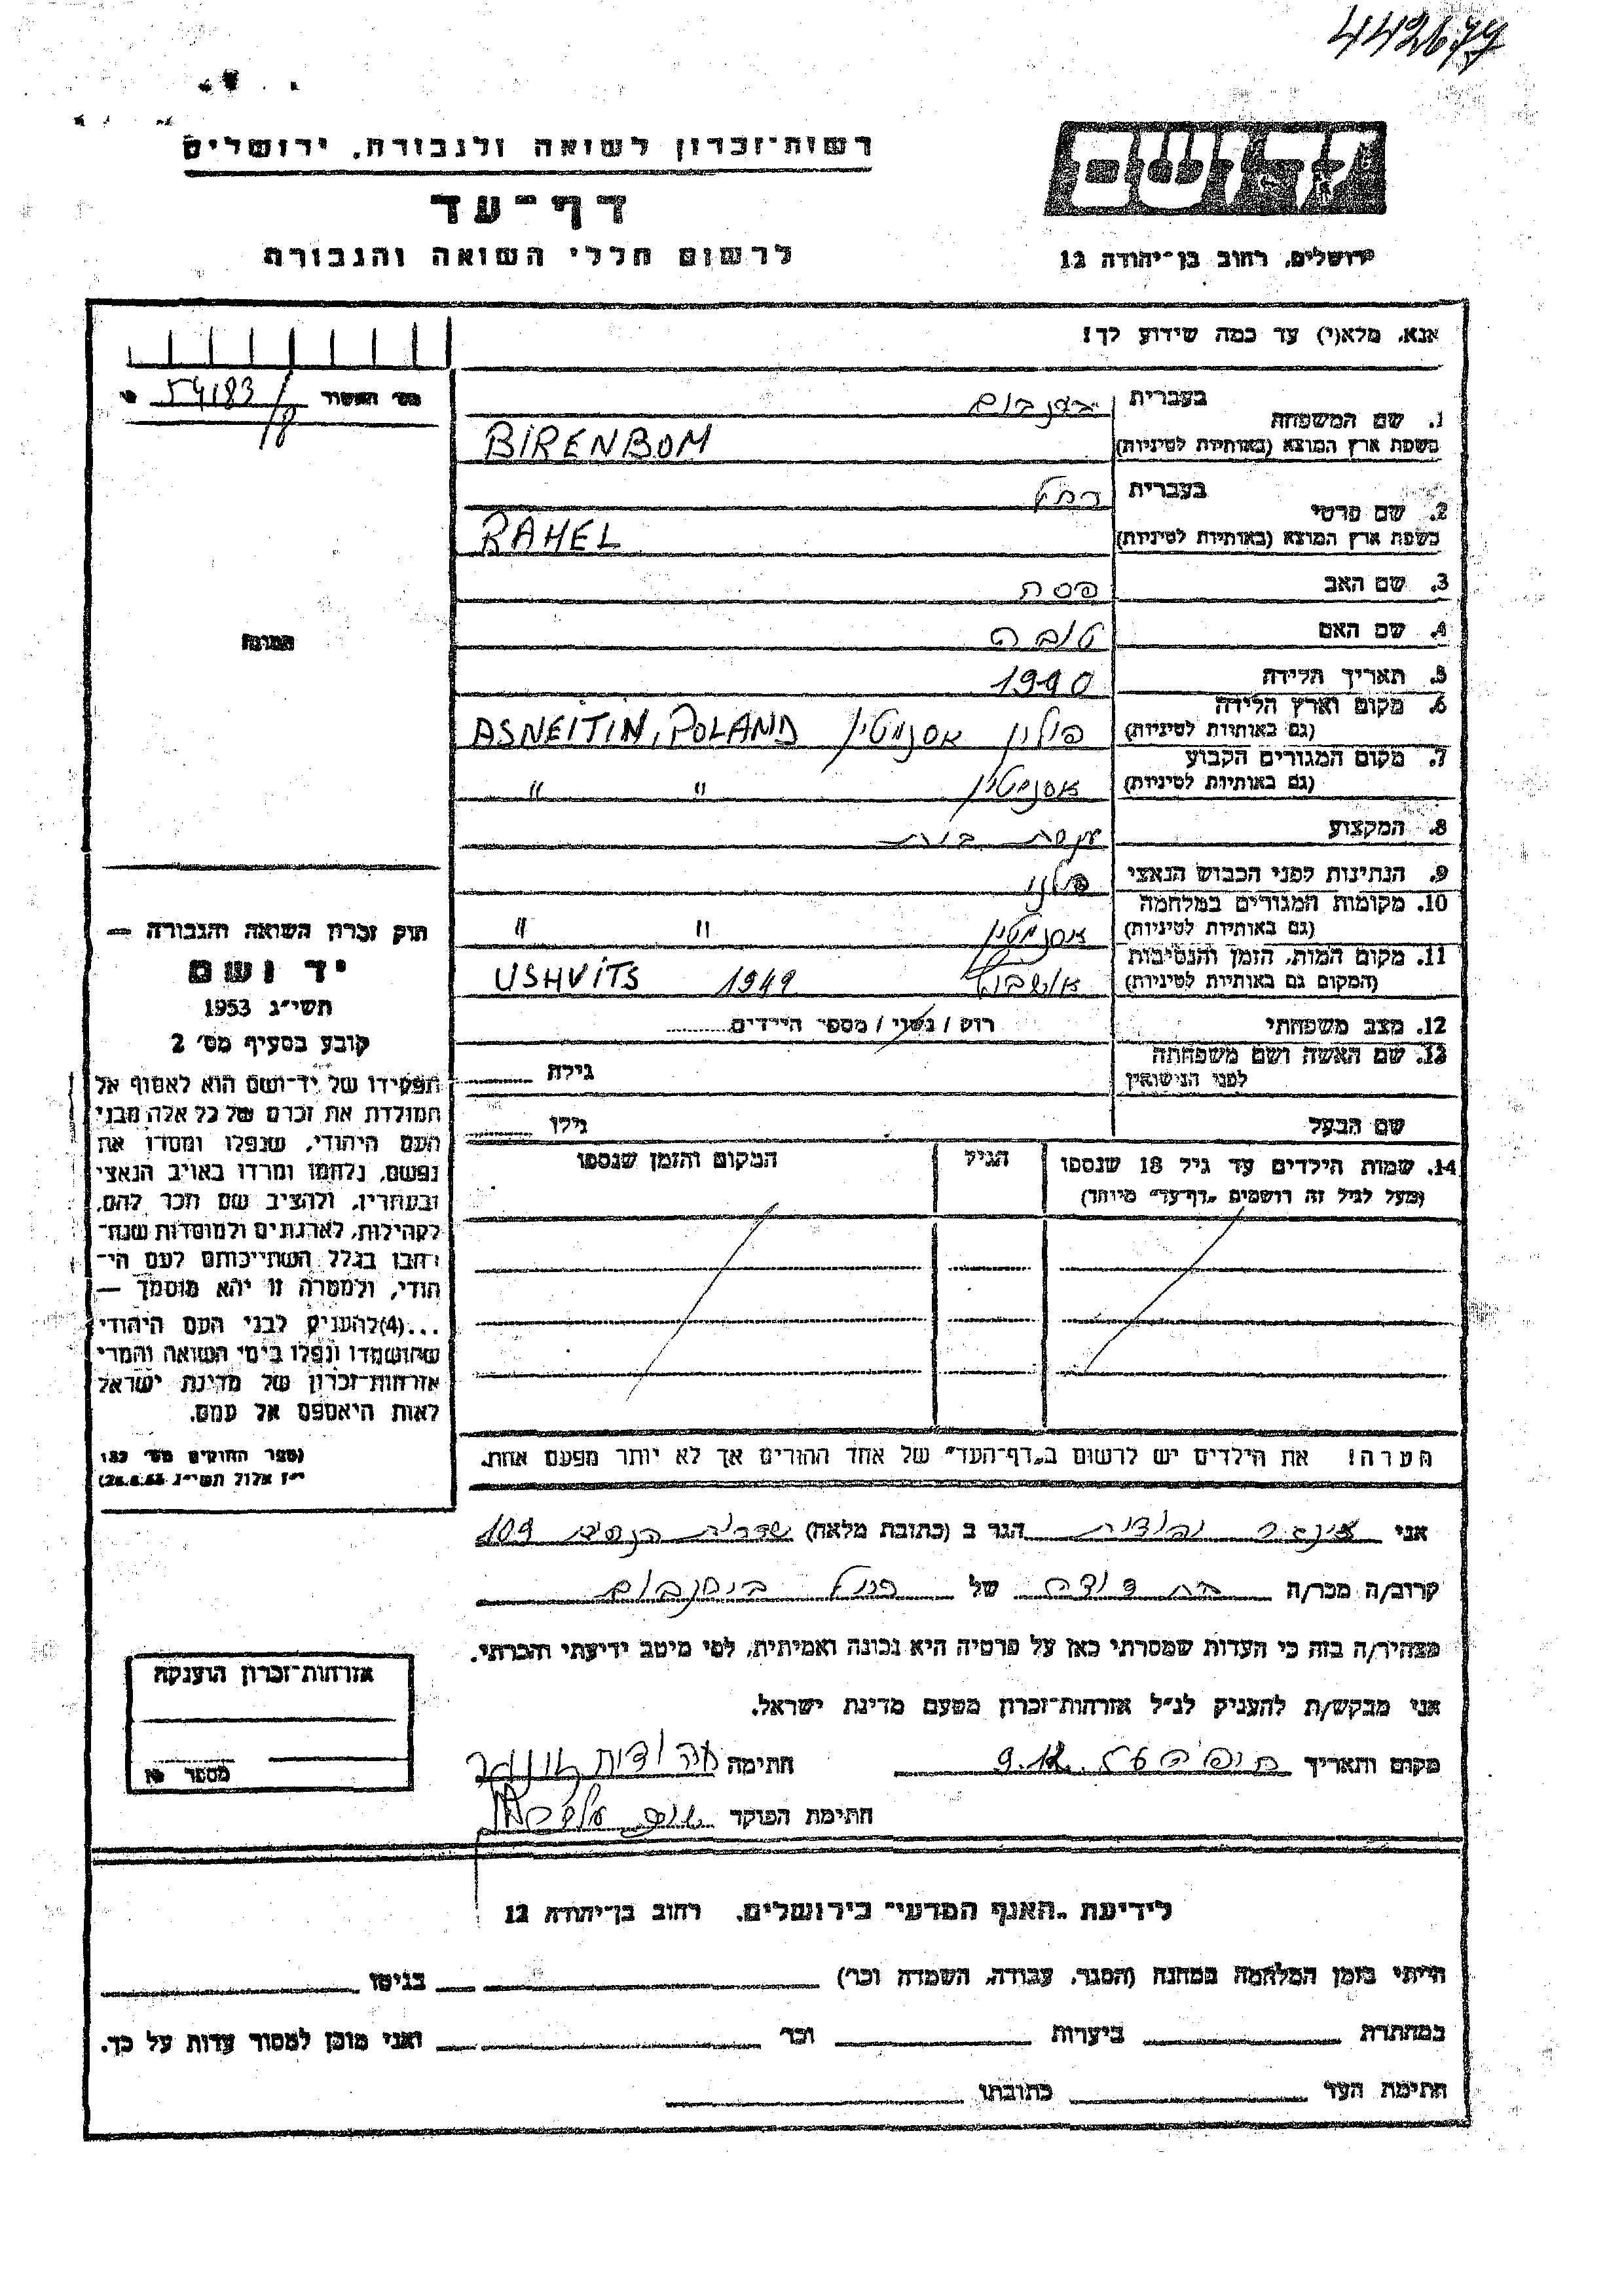 442679
רשות־זכרון לשואה ולגבורה, ירושלים
דף־עד
לרשום חללי השואה והגבורה
יד ושם
ירושלים, רחוב בן־יהודה 12
אנא, מלא(י) עד כמה שידוע לך!
מס' האשור 54183/8
1. שם המשפחה
בעברית
בשפת ארץ המוצא (באותיות לטיניות) BIRENBOM
2. שם פרטי
בעברית רחל
בשפת ארץ המוצא (באותיות לטיניות) RAHEL
3. שם האב פסח
4. שם האם טובה
5. תאריך הלידה 1940
6. מקום וארץ הלידה
(גם באותיות לטיניות) פולין אסנייטין ASNEITIN, POLAND
7. מקום המגורים הקבוע
(גם באותיות לטיניות) אסנייטין " "
8. המקצוע עקרת בית
9. הנתינות לפני הכבוש הנאצי פולני
10. מקומות המגורים במלחמה
(גם באותיות לטיניות) אסנייטין " "
11. מקום המות, הזמן והנסיבות
(המקום גם באותיות לטיניות) אושביץ 1942 USHVITS
12. מצב משפחתי רווק / נשוי / מספר הילדים
13. שם האשה ושם משפחתה
לפני הנישואין גילה
שם הבעל גילו
14. שמות הילדים עד גיל 18 שנספו הגיל המקום והזמן שנספו
(מעל לגיל זה רושמים "דף־עד" מיוחד)
הערה! את הילדים יש לרשום ב"דף־העד" של אחד ההורים אך לא יותר מפעם אחת.
התמונה
חוק זכרון השואה והגבורה —
יד ושם
תשי"ג 1953
קובע בסעיף מס' 2
תפקידו של יד־ושם הוא לאסוף אל
המולדת את זכרם של כל אלה מבני
העם היהודי, שנפלו ומסרו את
נפשם, נלחמו ומרדו באויב הנאצי
ובעוזריו, ולהציב שם וזכר להם,
לקהילות, לארגונים ולמוסדות שנח־
רבו בגלל השתייכותם לעם הי־
הודי, ולמטרה זו יהא מוסמך —
...(4) להעניק לבני העם היהודי
שהושמדו ונפלו בימי השואה והמרי
אזרחות־זכרון של מדינת ישראל
לאות היאספם אל עמם.
(ספר החוקים מס' 132
י"ז אלול תשי"ג 28.8.53)
אני יהודית הגר ב (כתובת מלאה) שדרות הנשיא 109
קרוב/ה מכר/ה בת דודה של רחל בירנבום
מצהיר/ה בזה כי העדות שמסרתי כאן על פרטיה היא נכונה ואמיתית, לפי מיטב ידיעתי והכרתי.
אני מבקש/ת להעניק לנ"ל אזרחות־זכרון מטעם מדינת ישראל.
מקום ותאריך חיפה 9.12 חתימה יהודית
חתימת הפוקד
אזרחות־זכרון הוענקה
מספר
לידיעת "האגף המדעי" בירושלים, רחוב בן־יהודה 12
הייתי בזמן המלחמה במחנה (הסגר, עבודה, השמדה וכו') בגיטו
במחתרת ביערות וכו' ואני מוכן למסור עדות על כך.
חתימת העד כתובתו